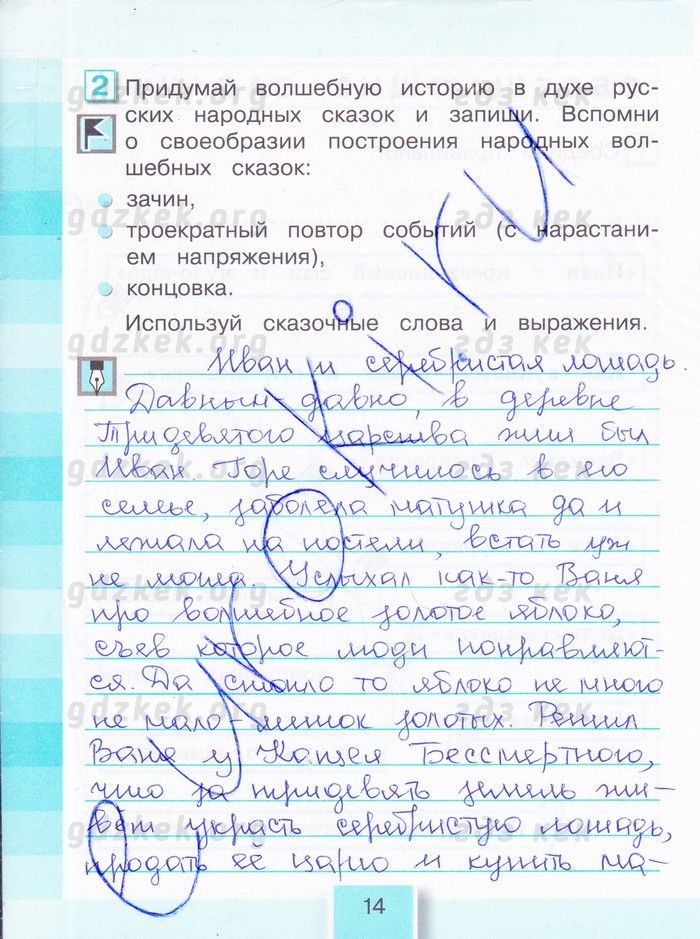 2 Придумай волшебную историю в духе рус-
ских народных сказок и запиши. Вспомни
о своеобразии построения народных вол-
шебных сказок:
зачин,
троекратный повтор событий (с нарастани-
ем напряжения),
концовка.
Используй сказочные слова и выражения.
Иван и серебристая лошадь.
Давным-давно, в деревне
Тридевятого царства жил был
Иван. Горе случилось в его
семье, заболела матушка да и
лежала на постели, встать уж
не могла. Услыхал как-то Ваня
про волшебное золотое яблоко,
съев которое люди поправляют-
ся. Да стоило то яблоко не много
не мало-мешок золотых. Решил
Ваня у Кощея Бессмертного,
что за тридевять земель жи-
вёт украсть серебристую лошадь,
продать её царю и купить ма-
14
gdzkek.org
гдз кек